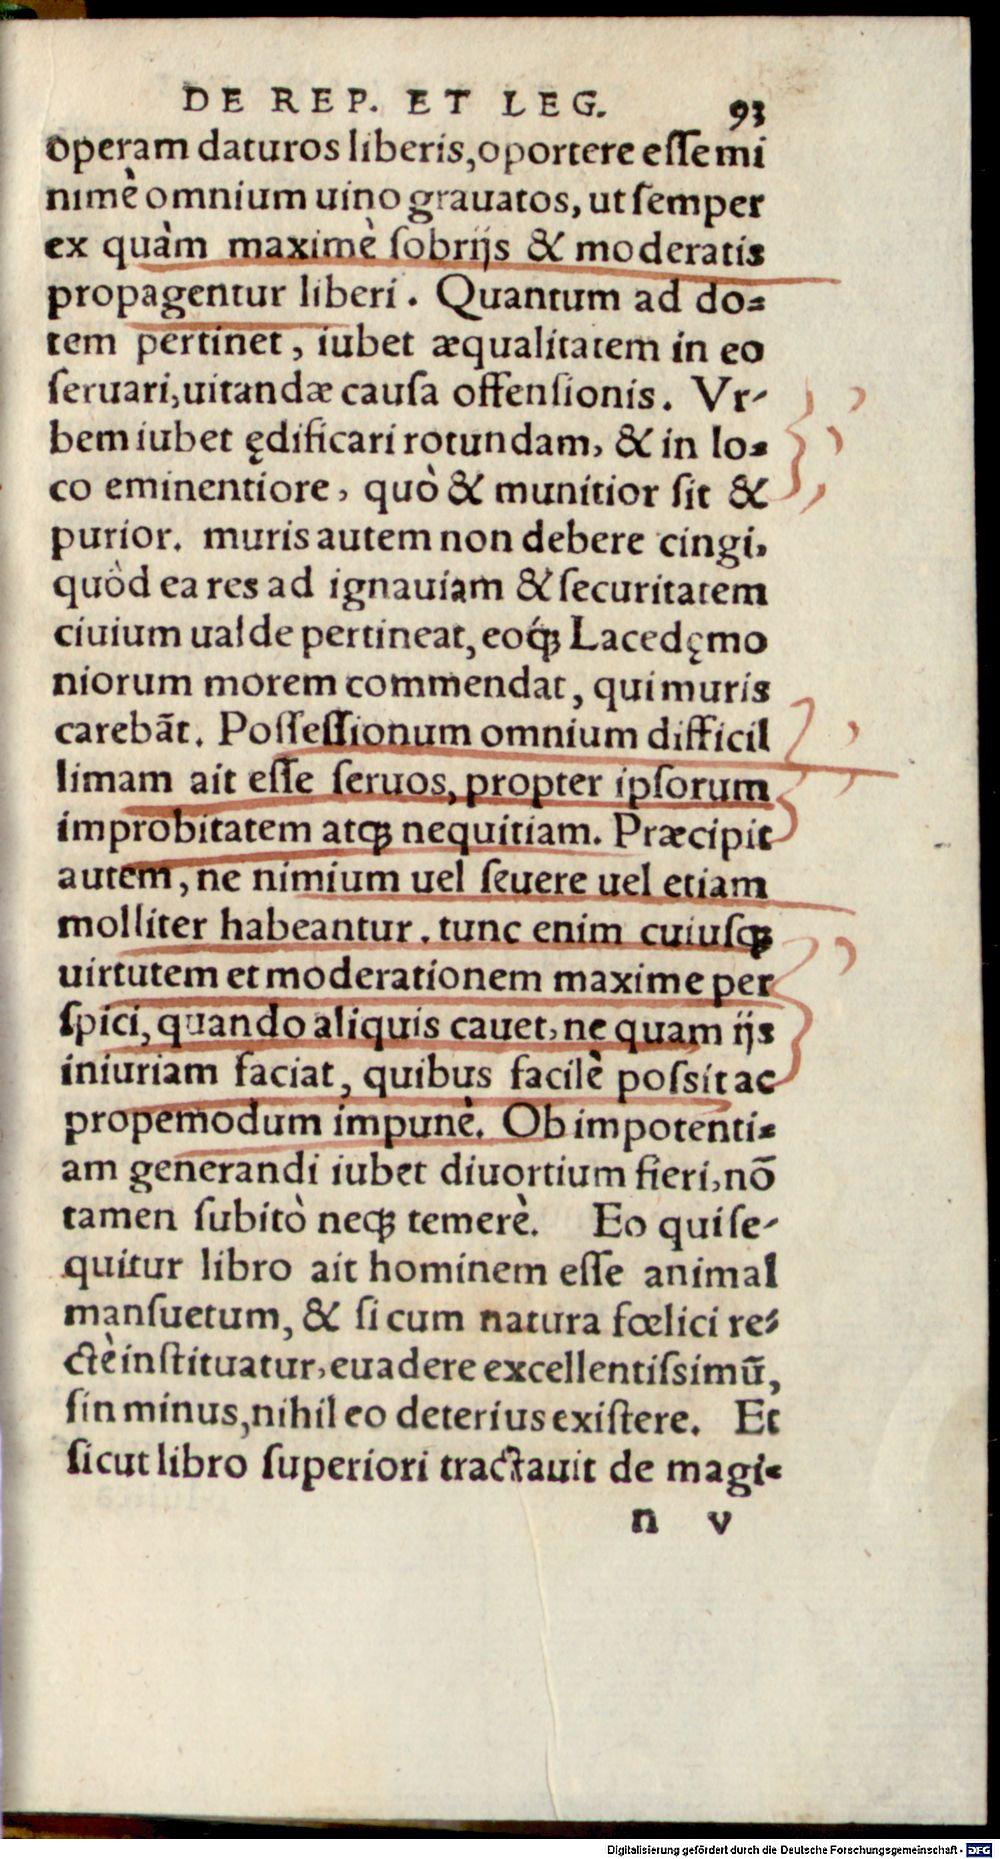 DE REP. ET LEG. 93
operam daturos liberis, oportere eſſe mi
nimè omnium uino grauatos, ut ſemper
ex quàm maximè ſobrijs & moderatis
propagentur liberi. Quantum ad do-
tem pertinet, iubet æqualitatem in eo
ſeruari, uitandæ cauſa offenſionis. Vr-
bem iubet ędificari rotundam, & in lo-
co eminentiore, quò & munitior ſit &
purior. muris autem non debere cingi,
quòd ea res ad ignauiam & ſecuritatem
ciuium ualde pertineat, eoq́ꝫ Lacedęmo
niorum morem commendat, qui muris
carebāt. Poſſeſſionum omnium difficil
limam ait eſſe ſeruos, propter ipſorum
improbitatem atqꝫ nequitiam. Præcipit
autem, ne nimium uel ſeuere uel etiam
molliter habeantur. tunc enim cuiuſqꝫ
uirtutem et moderationem maxime per
ſpici, quando aliquis cauet, ne quam ijs
iniuriam faciat, quibus facilè poſsit ac
propemodum impunè. Ob impotenti-
am generandi iubet diuortium fieri, nō
tamen ſubitò neqꝫ temerè. Eo qui ſe-
quitur libro ait hominem eſſe animal
manſuetum, & ſi cum natura fœlici re-
ctè inſtituatur, euadere excellentiſsimū,
ſin minus, nihil eo deterius exiſtere. Et
ſicut libro ſuperiori tractauit de magi-
n v
Digitalisierung gefördert durch die Deutsche Forschungsgemeinschaft - DFG